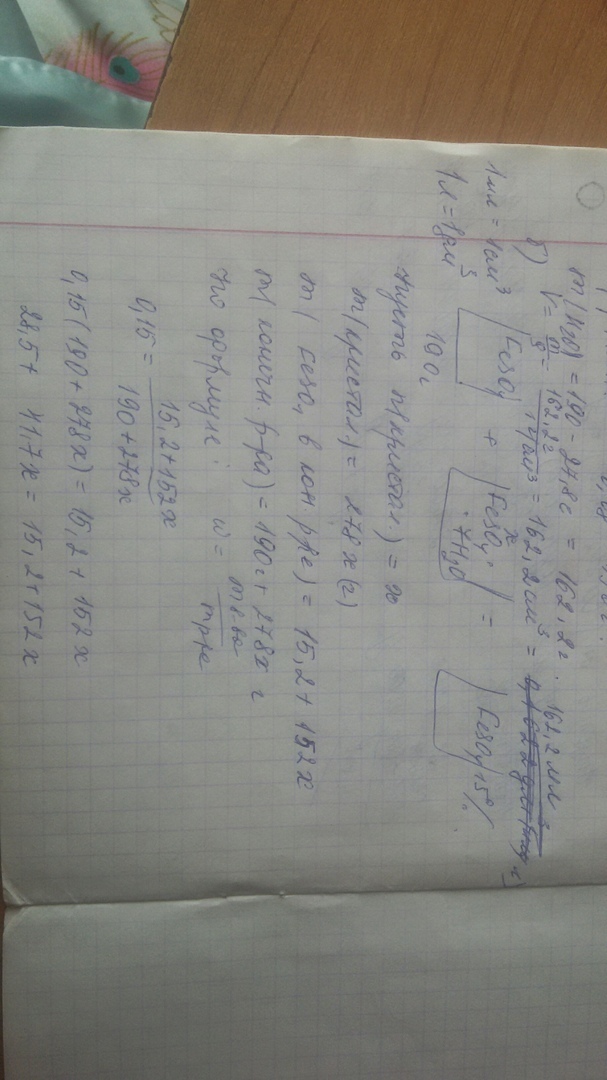 m(H₂O) = 190 - 27,8г = 162,2г.
V = m/ρ = 162,2г / 1г/см³ = 162,2 см³ = 162,2 мл
б)
1мл = 1см³
1л = 1дм³
FeSO₄ + FeSO₄ · 7H₂O = FeSO₄ 15%
x
190г
пусть n(кристал.) = x
m(кристал.) = 278x(г)
m( сега, в кон. р-ре) = 15,2 + 152x
m( конечн. р-ра) = 190г + 278x г
по формуле: w = m в-ва / m р-ра
0,15 = 15,2 + 152x / 190 + 278x
0,15(190 + 278x) = 15,2 + 152x
28,5 + 41,7x = 15,2 + 152x